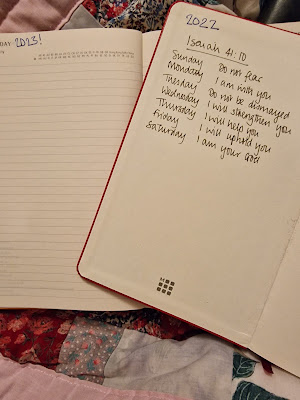 DAY: 2023!
2022
Isaiah 41:10
Sunday Do not fear
Monday I am with you
Tuesday Do not be dismayed
Wednesday I will strengthen you
Thursday I will help you
Friday I will uphold you
Saturday I am your God